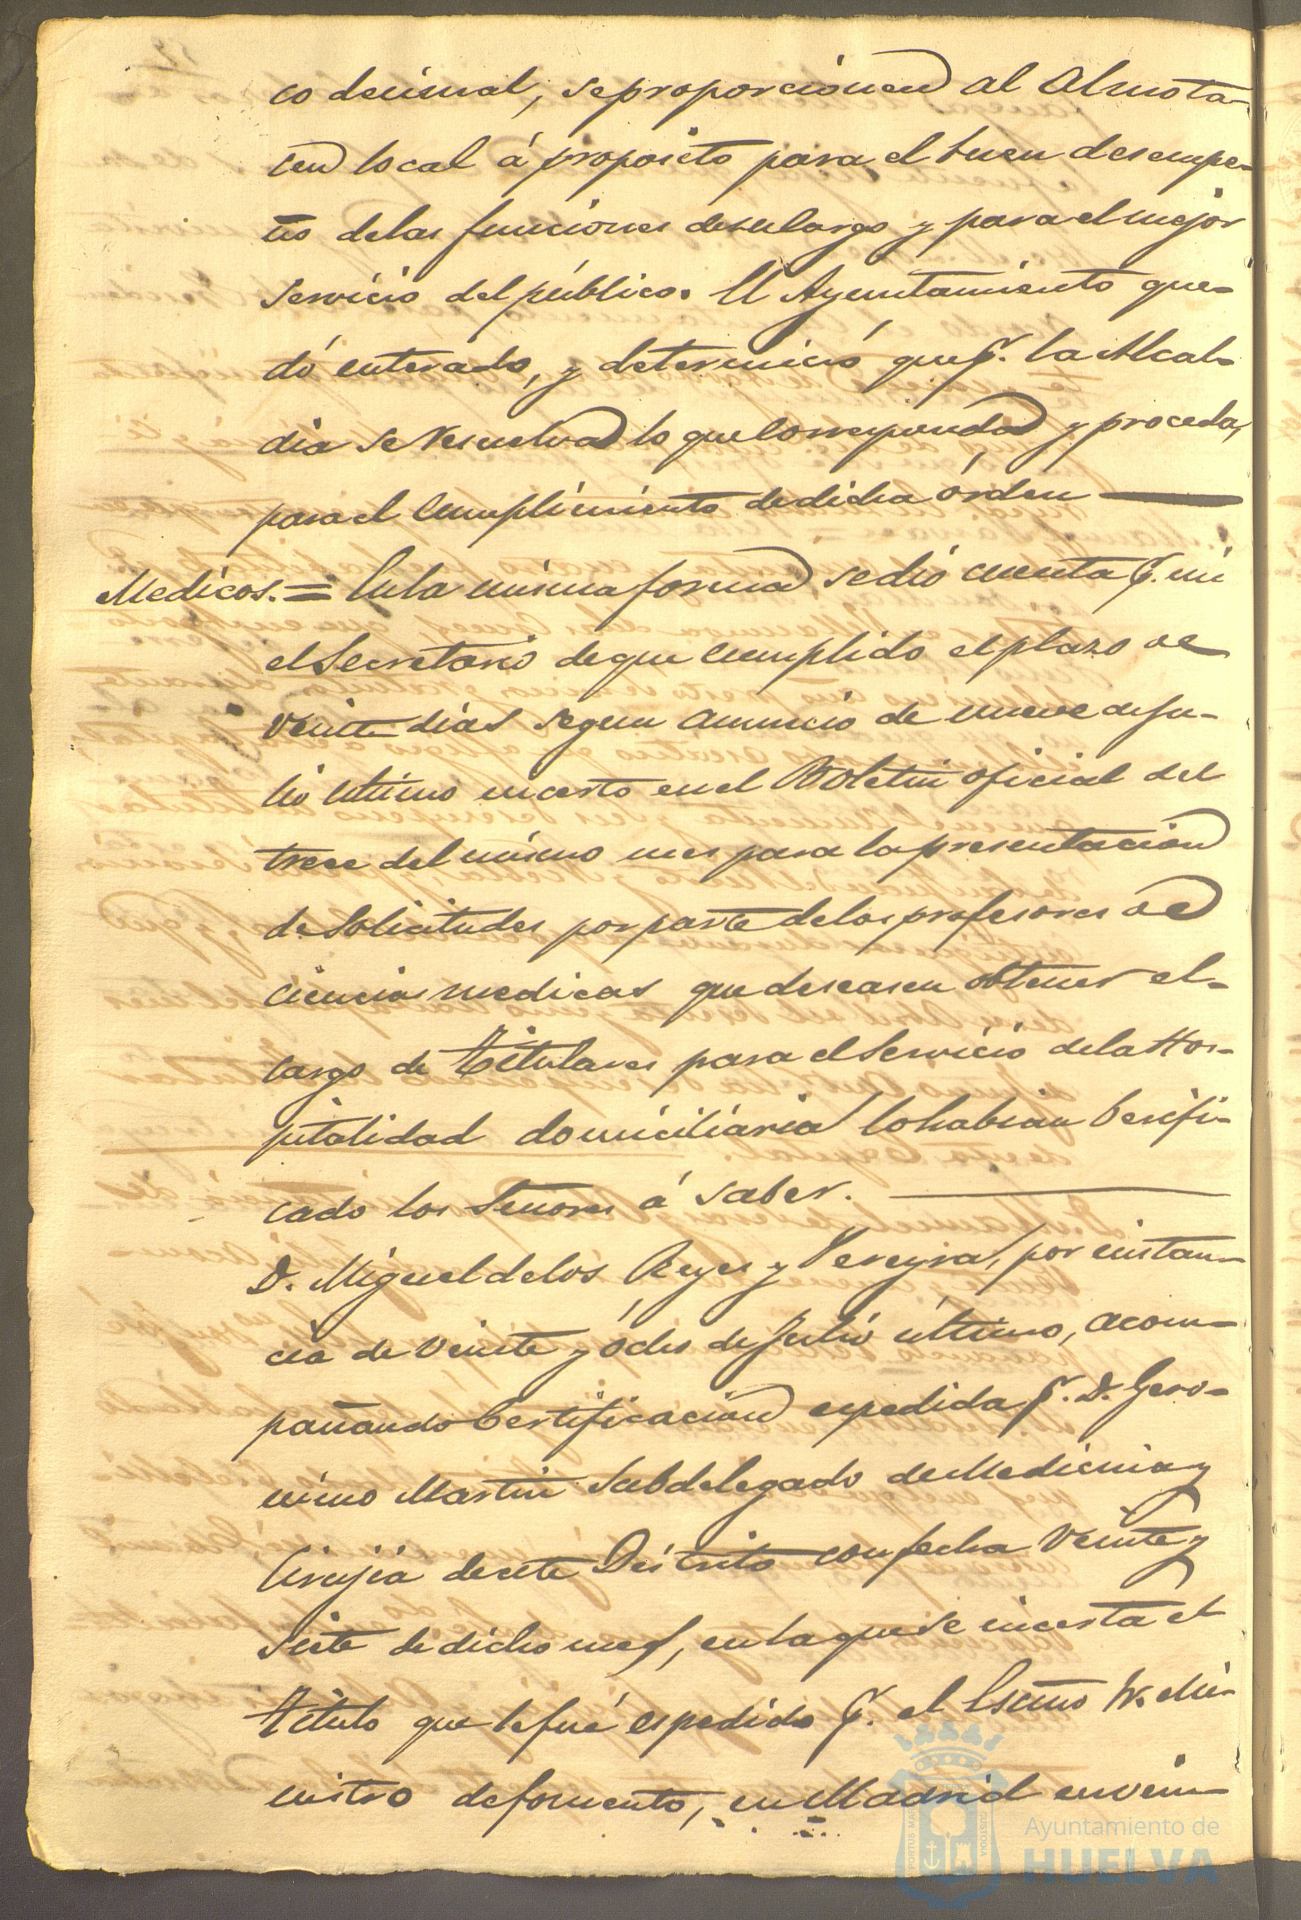 co decimal, se proporcionen al Almota-
cen local á proposito para el buen desempe-
ño de las funciones de su cargo y para el mejor
servicio del público. El Ayuntamiento que-
dó enterado, y determinó que p.r la Alcal-
dia se resuelva lo que corresponda y proceda,
para el cumplimiento de dicha órden
Medicos. = En la misma forma se dió cuenta p.r mi
el Secretario de que cumplido el plazo de
veinte dias segun anuncio de nueve de Ju-
lio último incerto en el Boletin oficial del
trece del mismo mes para la presentacion
de Solicitudes por parte de los profesores de
ciencias medicas que deseasen obtener el
cargo de Titulares para el Servicio de la Hos-
pitalidad domiciliaria lo habian berifi-
cado los Señores á saber.
D. Miguel de los Reyes y Pereyra, por instan-
cia de veinte y ócho de Julio último, acom-
pañando Certificacion espedida p.r D. Gero-
nimo Martin Subdelegado de Medicina y
Cirujia de este Distrito con fecha veinte y
siete de dicho mes, en la que se incerta el
titulo que le fué espedido p.r el Escmo Sr. Mi-
nistro de fomento, en Madrid en vein-
Ayuntamiento de
HUELVA